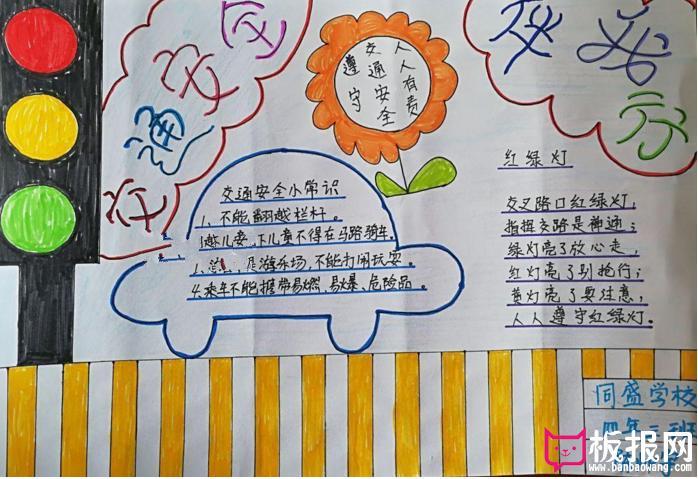 交通安全
人人有责
交通安全
遵守
红绿灯
交叉路口红绿灯，
指挥交路是神通；
绿灯亮了放心走，
红灯亮了别抢行；
黄灯亮了要注意，
人人遵守红绿灯。
交通安全小常识
1、不能翻越栏杆。
儿童不得在马路骑车。
游乐场，不能打闹玩耍。
4.乘车不能携带易燃、易爆、危险品。
同盛学校
四年二班
板报网
www.banbaowang.com